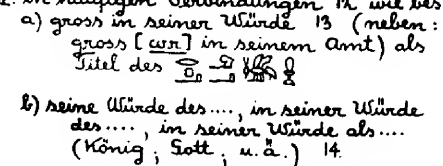 in häufigen Verbindungen 12 wie bes
a) gross in seiner Würde 13 (neben:
gross [wr] in seinem Amt) als
Titel des
b) seine Würde des...., in seiner Würde
des...., in seiner Würde als....
(König, Gott, u. ä.) 14.